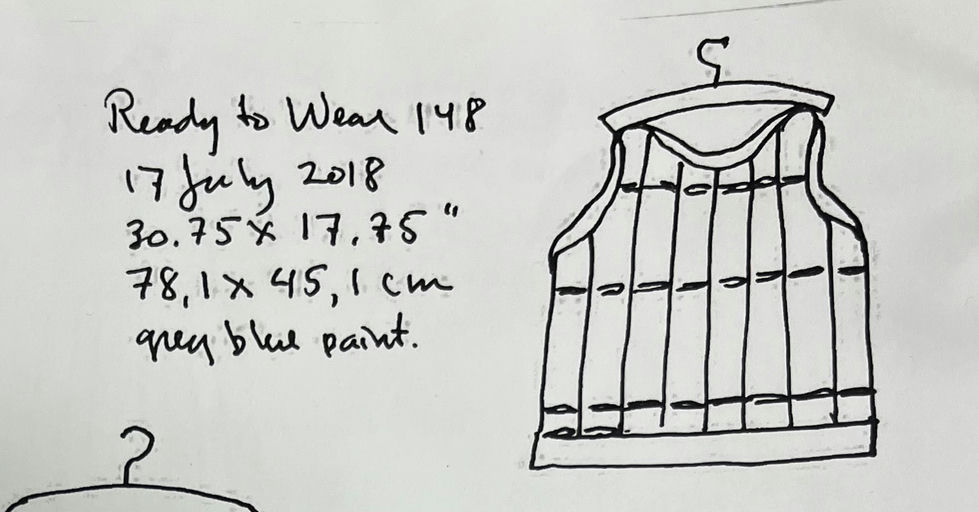 Ready to Wear 148
17 July 2018
30.75 x 17.75"
78,1 x 45,1 cm
grey blue paint.